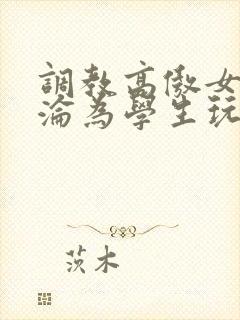 調教高傲女
淪為學生玩
茨木